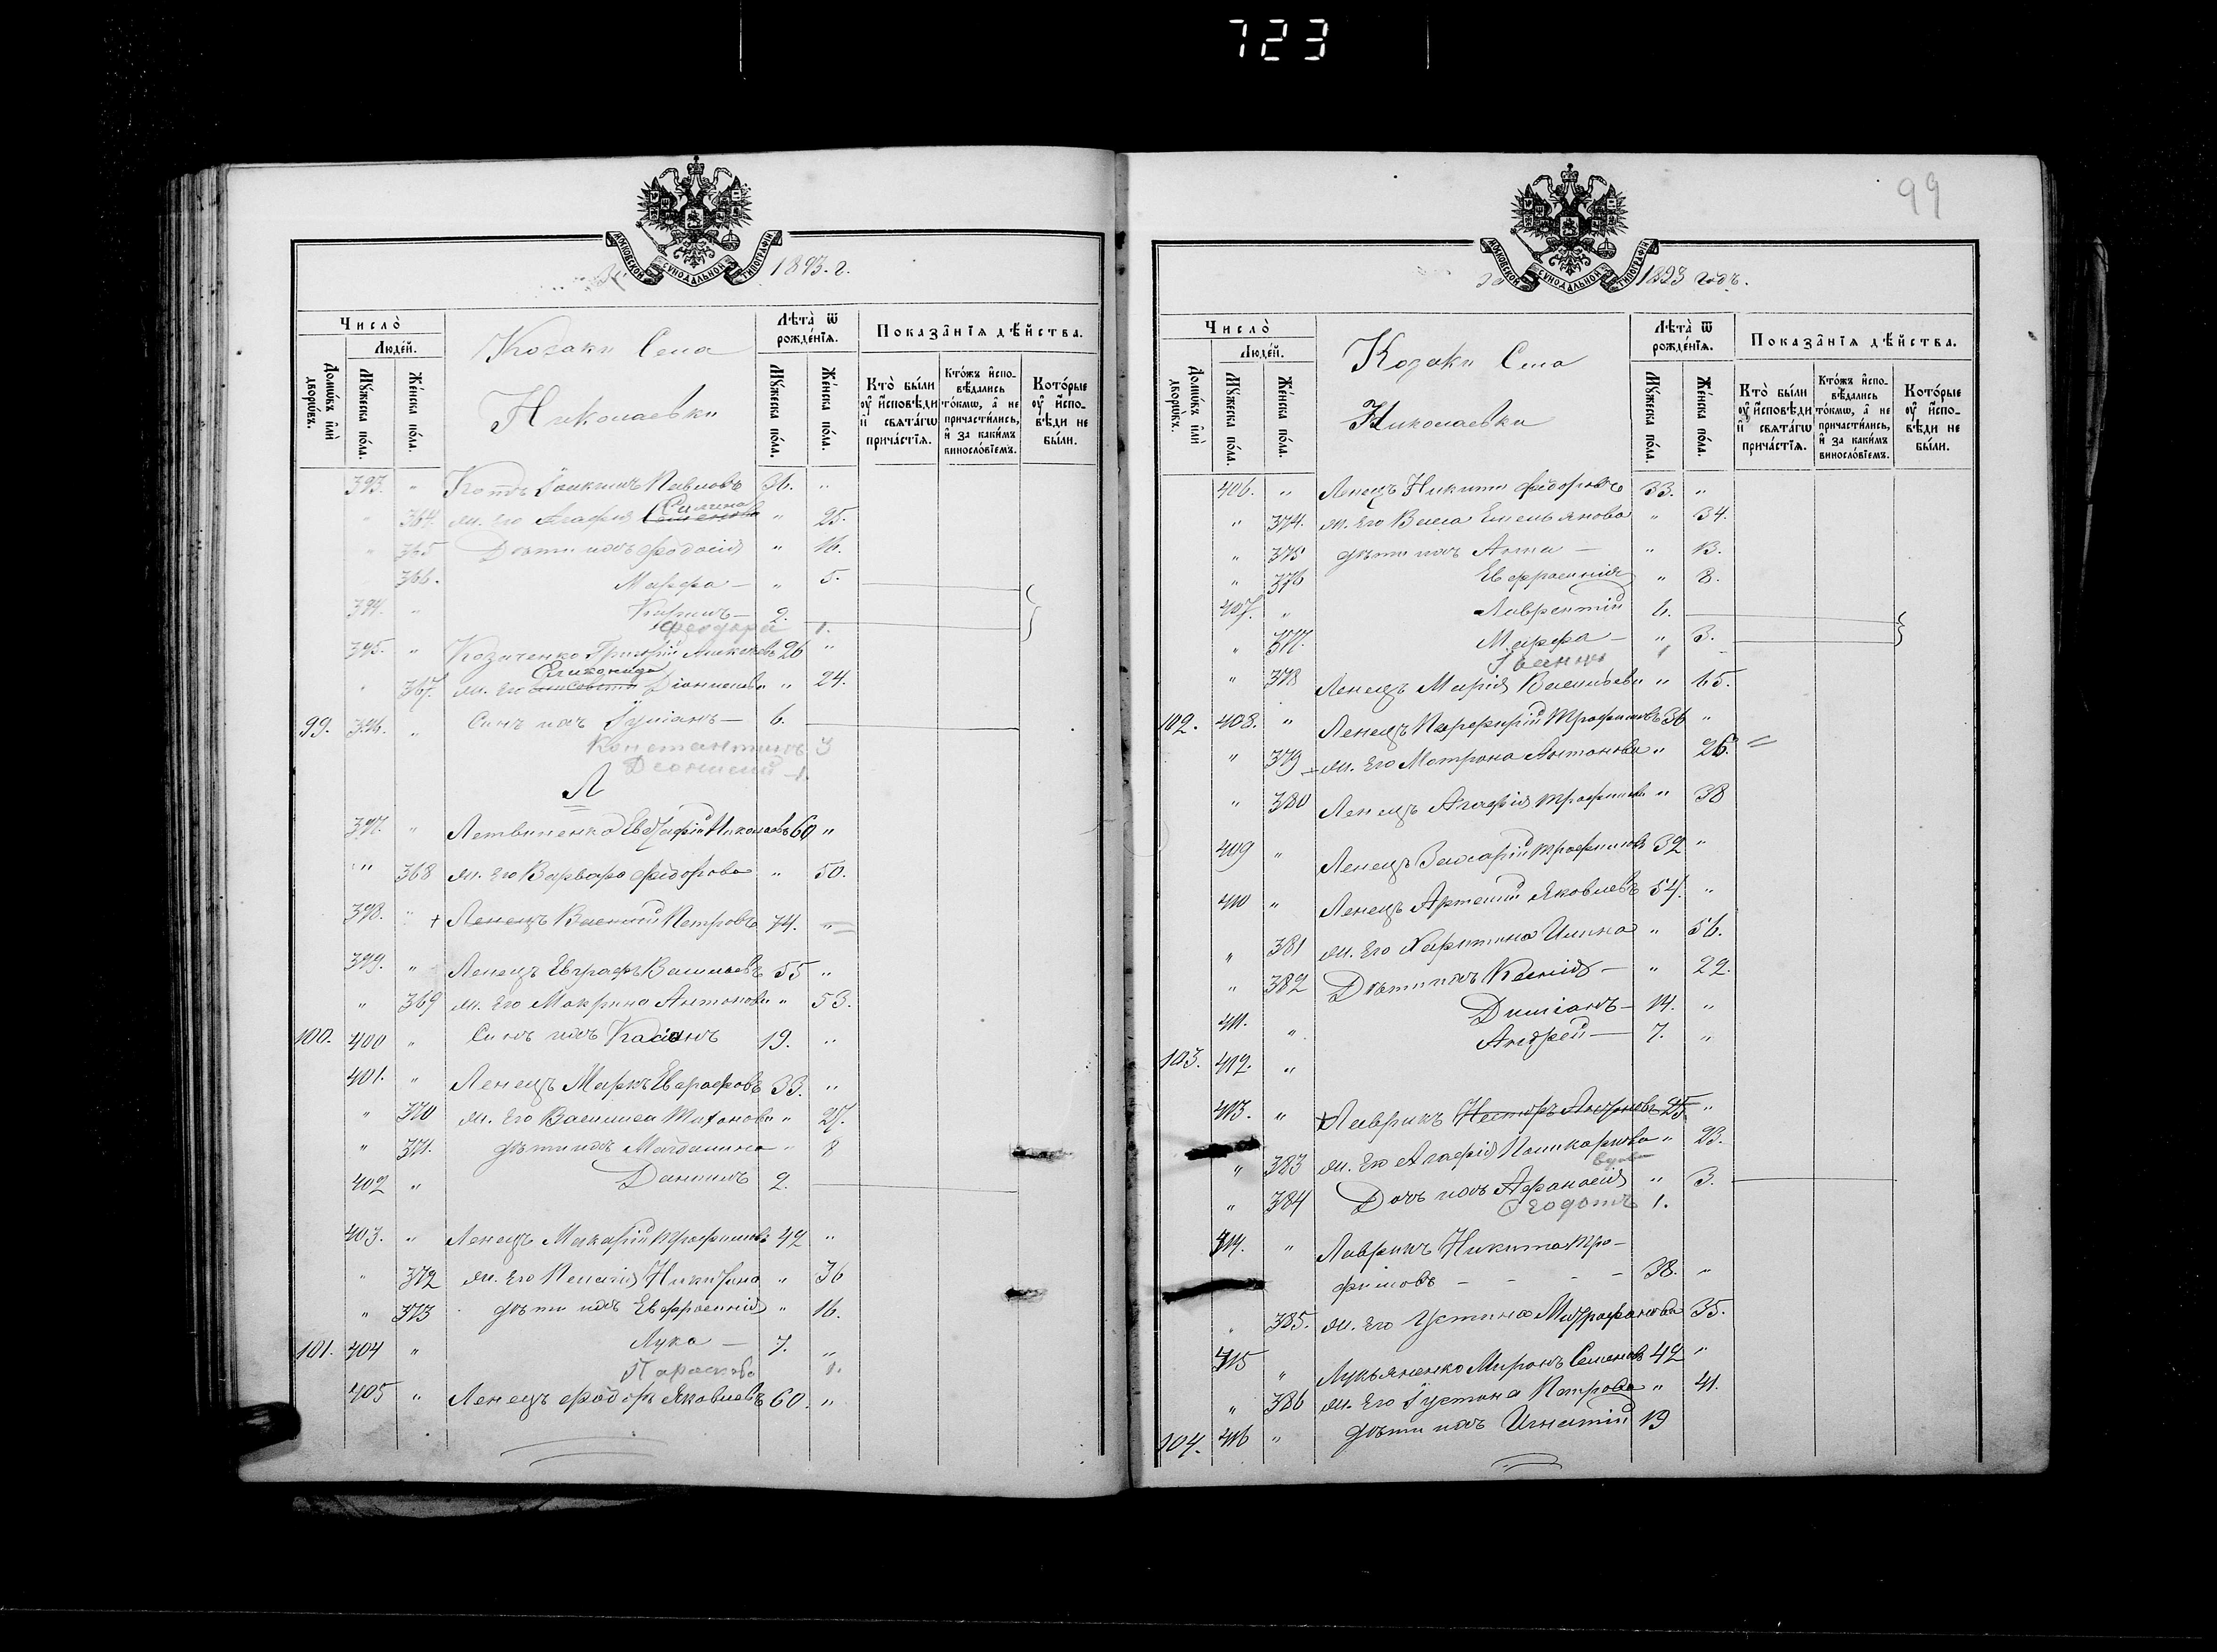 723
99
МОСКОВСКОЙ СѴНОДАЛЬНОЙ ТИПОГРАФІИ
1893. г.
Число̀
Людéй.
Домѡ́въ и҆лѝ дворѡ́въ.
Мꙋ́жеска по́ла.
Же́нска по́ла.
Козаки Села
Николаевки
Лѣта̀ ѿ рожде́нїѧ.
Мꙋ́жеска по́ла.
Же́нска по́ла.
Показа̑нїѧ дѣ́йства.
Кто̀ бы́ли ᲂу҆ и҆сповѣ́ди и҆ свѧта́гѡ прича́стїѧ.
Кто́жъ и҆сповѣ́дались то́кмѡ, а҆ не причасти́лись, и҆ за каки́мъ винословїемъ.
Кото́рые ᲂу҆ и҆сповѣ́ди не бы́ли.
393. " Павловъ 36. "
" 364. ж. его Агафія Силина 25.
" 365 Дѣти ихъ Феодосія " 16.
366. Марфа — " 5.
394. " 2.
Феодора 1.
395. " Козаченко Григорій 26 "
" 367. ж. его Діонисіева " 24.
99. 396. " Сынъ ихъ Іуліанъ — 6.
Константинъ 3
Діонисій 1.
Л
397. " Литвиненко Евстафій Николаевъ 60 "
" 368 ж. его Варвара Федорова " 50.
398. " + Ленецъ Василій Петровъ 74. "
399. " Ленецъ Евграфъ Васильевъ 55 "
" 369 ж. его Макрина Антонова " 53.
100. 400 " Сынъ ихъ Касіанъ 19. "
401. " Ленецъ Маркъ Евграфовъ 33. "
" 370 ж. его Василиса Тихонова " 27.
" 371. дѣти ихъ " 8
402 " Даніилъ 2.
403. " Ленецъ Макарій Трофимовъ 42 "
" 372 ж. его Пелагія " 36
" 373 дѣти ихъ Евфросинія " 16.
101. 404 " Лука — 7. "
Параскева 1.
405 " Ленецъ Федоръ Яковлевъ 60. "
МОСКОВСКОЙ СѴНОДАЛЬНОЙ ТИПОГРАФІИ
за 1893 годъ.
Число̀
Людéй.
Домѡ́въ и҆лѝ дворѡ́въ.
Мꙋ́жеска по́ла.
Же́нска по́ла.
Козаки Села
Николаевки
Лѣта̀ ѿ рожде́нїѧ.
Мꙋ́жеска по́ла.
Же́нска по́ла.
Показа̑нїѧ дѣ́йства.
Кто̀ бы́ли ᲂу҆ и҆сповѣ́ди и҆ свѧта́гѡ прича́стїѧ.
Кто́жъ и҆сповѣ́дались то́кмѡ, а҆ не причасти́лись, и҆ за каки́мъ винословїемъ.
Кото́рые ᲂу҆ и҆сповѣ́ди не бы́ли.
406. " Ленецъ Никита Федоровъ 33. "
" 374. ж. его Васса Емельянова " 34.
" 375 дѣти ихъ Анна — " 13.
" 376 Евфросинія " 8.
407. " Лаврентій 6.
" 377. Марфа — " 3.
" 378 Ленецъ Марія Васильева " 65.
102. 408. " Ленецъ Парфирій Трофимовъ 36 "
" 379 ж. его Матрона Антонова " 26.
" 380 Ленецъ Агафія Трофимова " 38
409 " Ленецъ Захарій Трофимовъ 32 "
410 " Ленецъ Артемій Яковлевъ 54. "
" 381 ж. его Харитина Илина " 56.
" 382 Дѣти ихъ Ксенія — " 22.
411. " Диміанъ — 14. "
103. 412. " Андрей — 7. "
413. " + Лаврикъ Несторъ 25. "
" 383 ж. его Агафія Поликарпова " 23.
вдова
" 384 Дочь ихъ Афанасія " 3.
Феодотъ 1.
414. " Лаврикъ Никита Тро-
фимовъ — — — 38. "
" 385. ж. его Устина Митрофанова 35.
415 " Лукьяненко Миронъ Семеновъ 42 "
" 386 ж. его Іустина Петрова " 41.
104. 416 " дѣти ихъ Игнатій 19